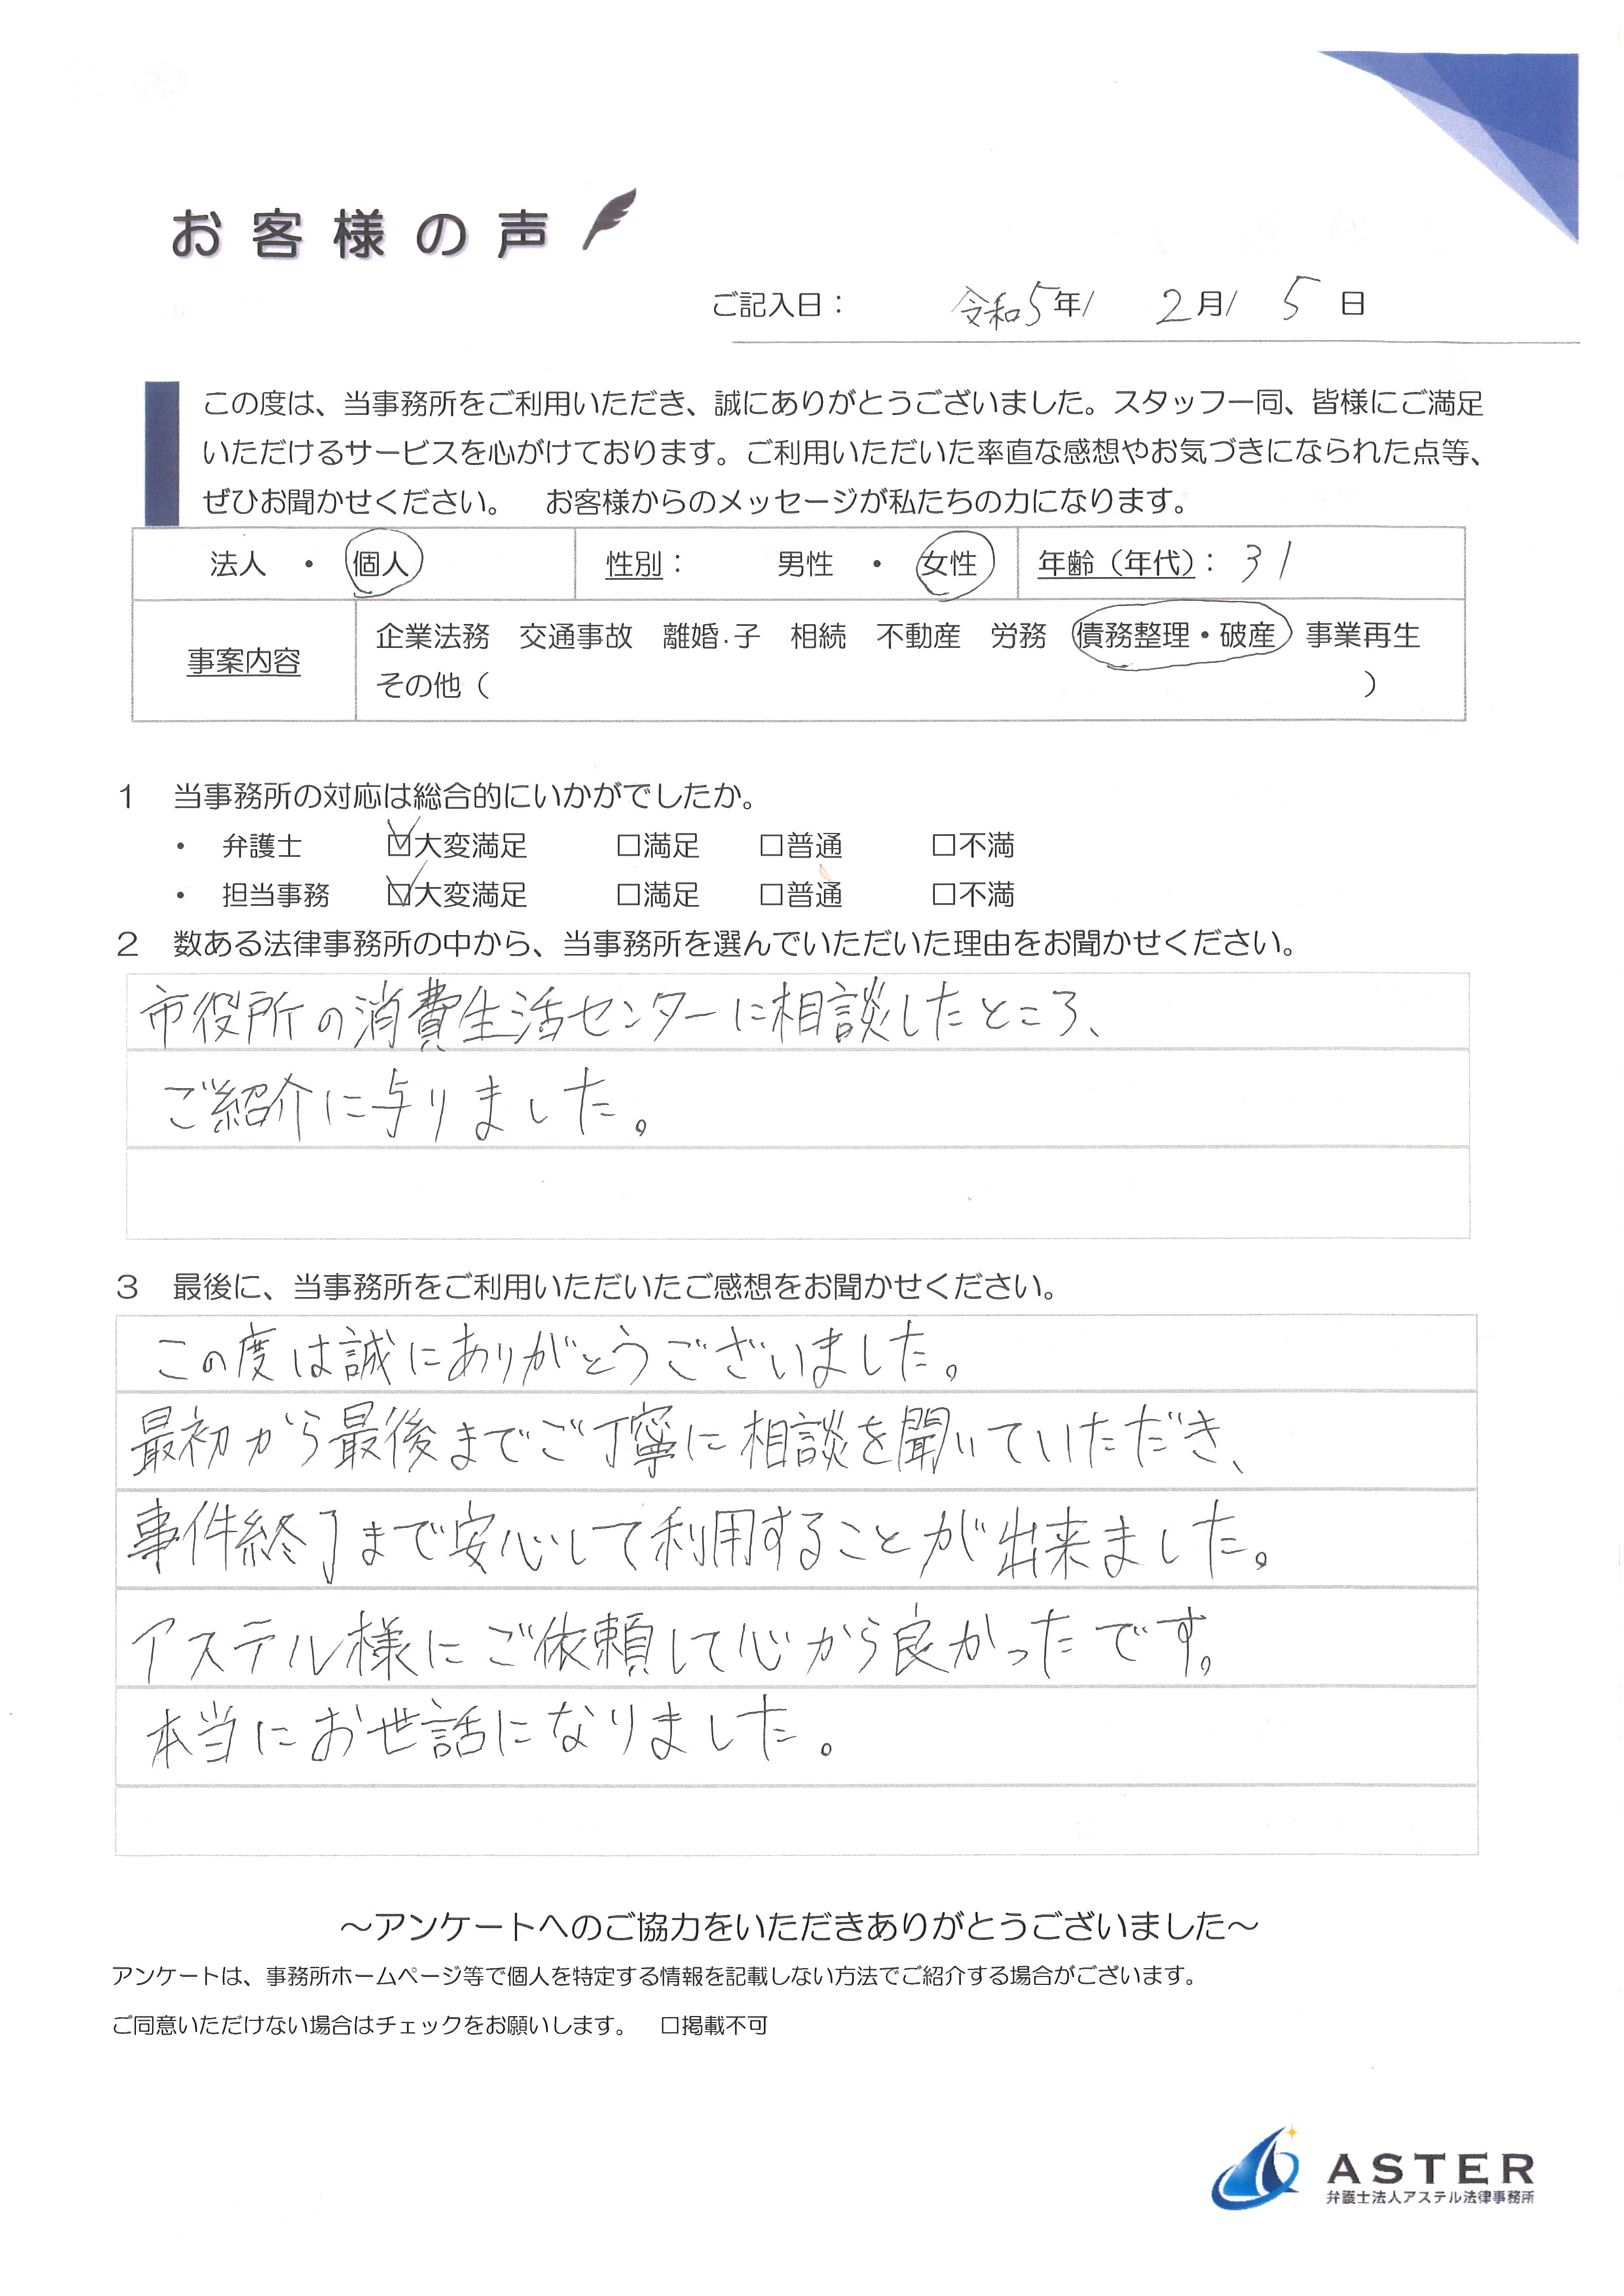 お客様の声
ご記入日： 令和5年/ 2月/ 5日
この度は、当事務所をご利用いただき、誠にありがとうございました。スタッフ一同、皆様にご満足
いただけるサービスを心がけております。ご利用いただいた率直な感想やお気づきになられた点等、
ぜひお聞かせください。 お客様からのメッセージが私たちの力になります。
法人 ・ 個人 性別： 男性 ・ 女性 年齢（年代）： 31
事案内容
企業法務 交通事故 離婚・子 相続 不動産 労務 債務整理・破産 事業再生
その他（ ）
1 当事務所の対応は総合的にいかがでしたか。
・ 弁護士 ☑大変満足 □満足 □普通 □不満
・ 担当事務 ☑大変満足 □満足 □普通 □不満
2 数ある法律事務所の中から、当事務所を選んでいただいた理由をお聞かせください。
市役所の消費生活センターに相談したところ、
ご紹介に与りました。
3 最後に、当事務所をご利用いただいたご感想をお聞かせください。
この度は誠にありがとうございました。
最初から最後までご丁寧に相談を聞いていただき、
事件終了まで安心して利用することが出来ました。
アステル様にご依頼して心から良かったです。
本当にお世話になりました。
～アンケートへのご協力をいただきありがとうございました～
アンケートは、事務所ホームページ等で個人を特定する情報を記載しない方法でご紹介する場合がございます。
ご同意いただけない場合はチェックをお願いします。 □掲載不可
ASTER
弁護士法人アステル法律事務所